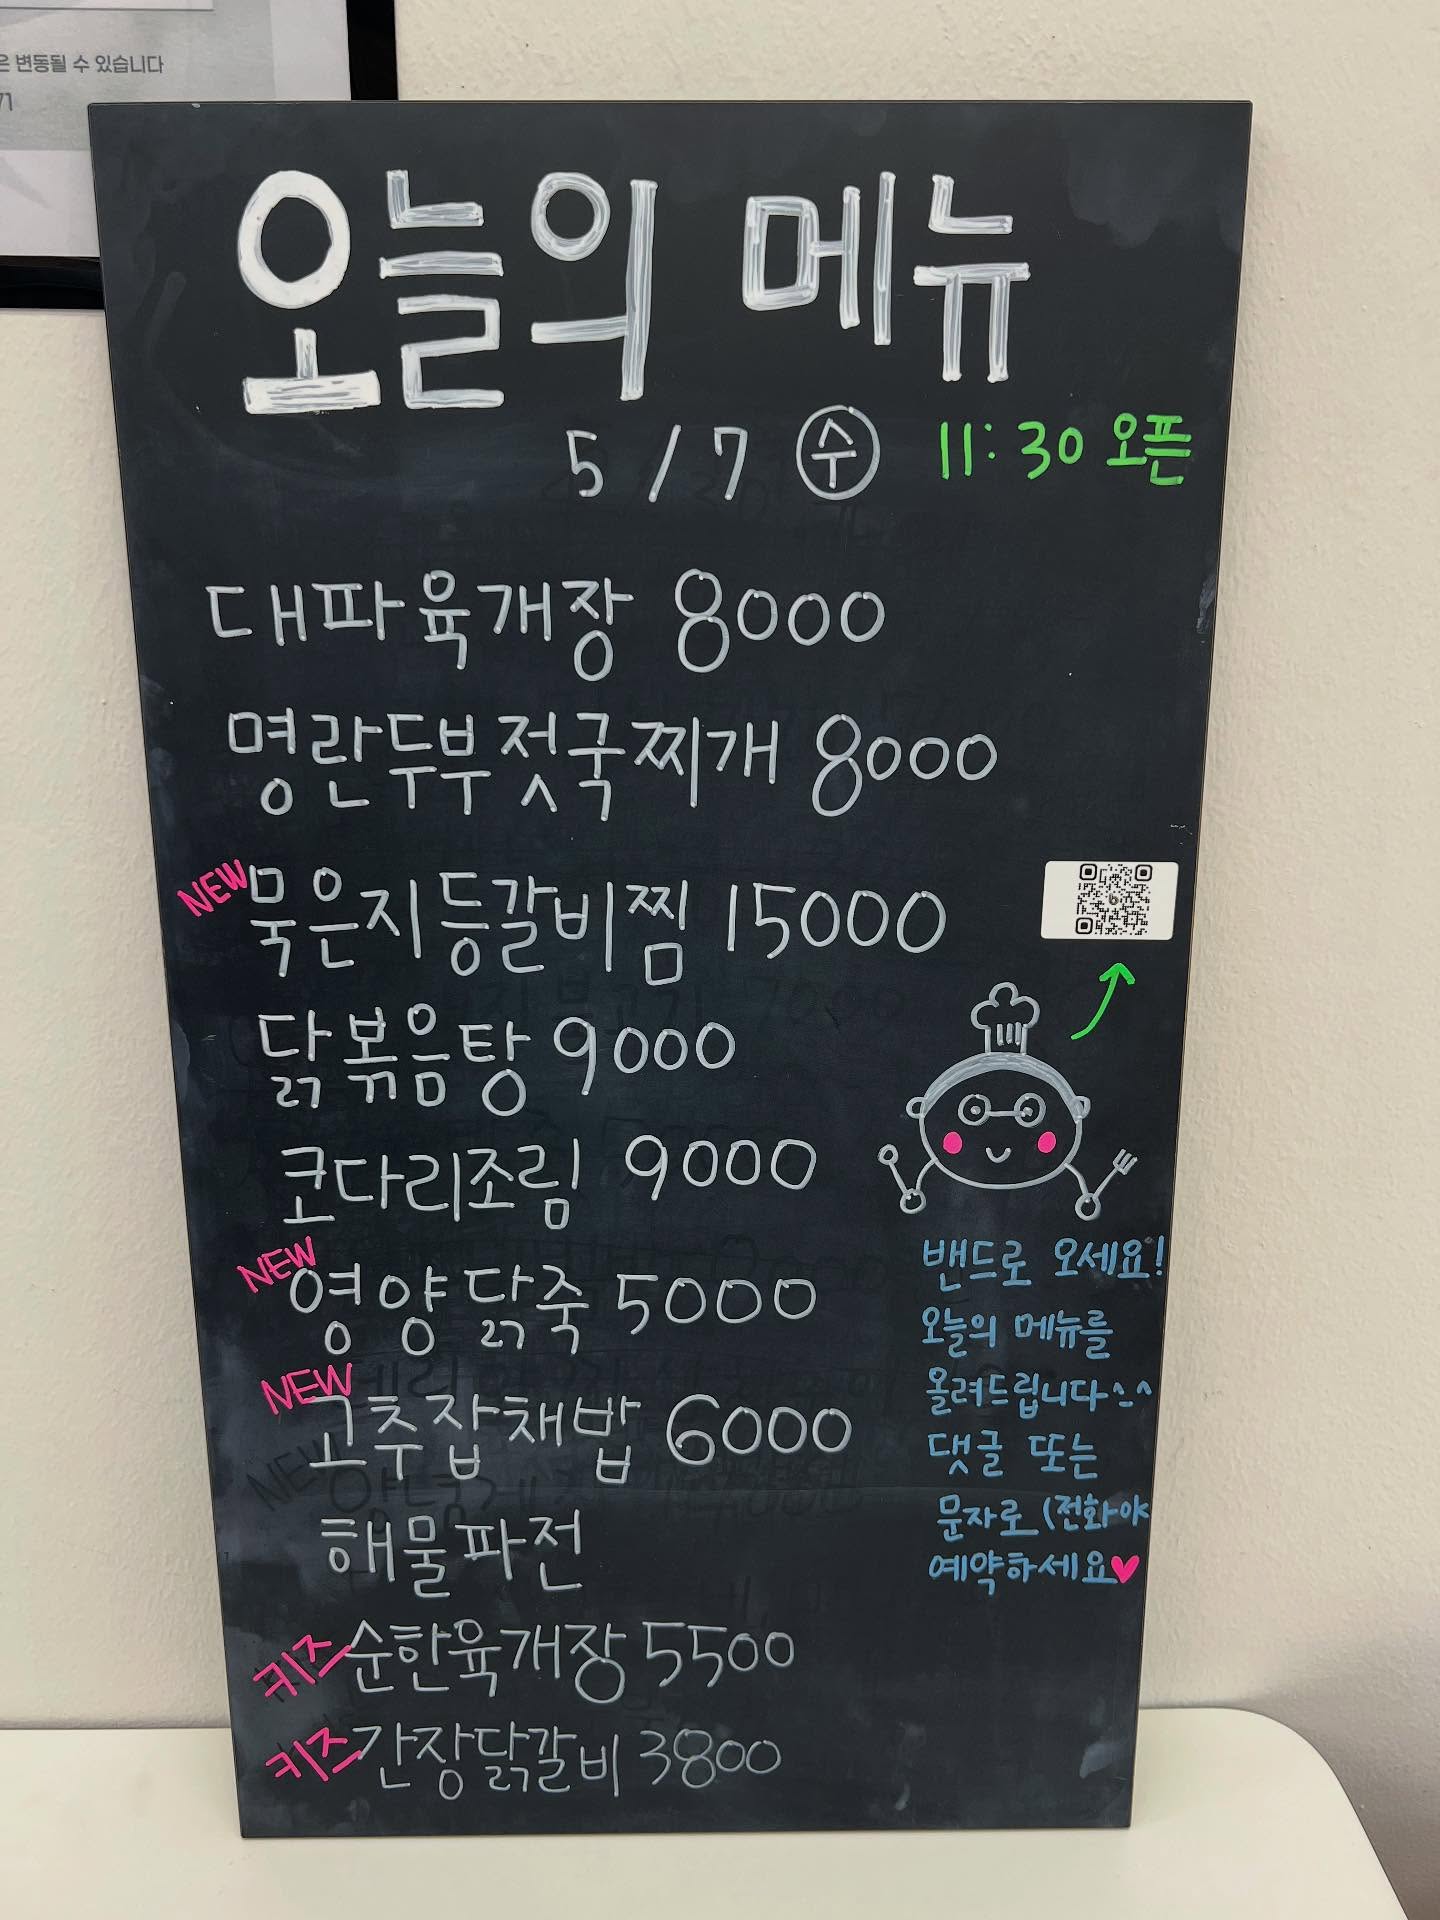 은 변동될 수 있습니다
71
오늘의 메뉴
5/7 ㊌ 11:30 오픈
대파육개장 8000
명란두부젓국찌개 8000
NEW 묵은지등갈비찜 15000
닭볶음탕 9000
코다리조림 9000
NEW 영양닭죽 5000
NEW 고추잡채밥 6000
해물파전
키즈 순한육개장 5500
키즈 간장닭갈비 3800
밴드로 오세요!
오늘의 메뉴를
올려드립니다^-^
댓글 또는
문자로 (전화x)
예약하세요♥